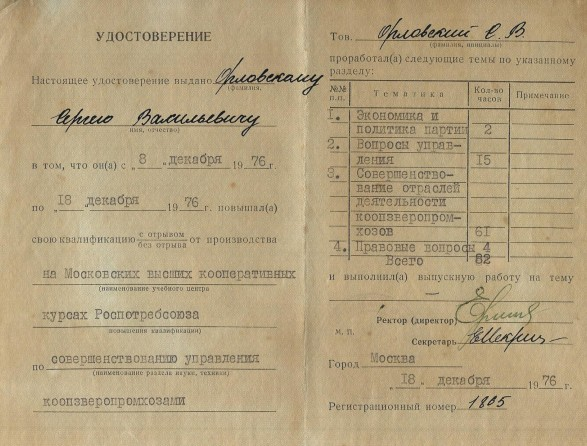 УДОСТОВЕРЕНИЕ
Настоящее удостоверение выдано Орловскому
(фамилия,
Сергею Васильевичу
имя, отчество)
в том, что он(а) с „ 8 „ декабря 1976 г.
по „ 18 „ декабря 1976 г. повышал(а)
свою квалификацию с отрывом от производства
без отрыва
на Московских высших кооперативных
(наименование учебного центра
курсах Роспотребсоюза
повышение квалификации)
по совершенствованию управления
(наименование раздела науки, техники)
коопзверопромхозами
Тов. Орловский С. В.
(фамилия, инициалы)
проработал(а) следующие темы по указанному
разделу:
№№ п.п. Тематика Кол-во часов Примечание
1. Экономика и
политика партии 2
2. Вопросы управ-
ления 15
3. Совершенство-
вание отраслей
деятельности
коопзверопром-
хозов 61
4. Правовые вопросы 4
Всего 82
и выполнил(а) выпускную работу на тему
—
Ректор (директор)
м. п.
Секретарь
Город Москва
„ 18 „ декабря 1976 г.
Регистрационный номер 1805